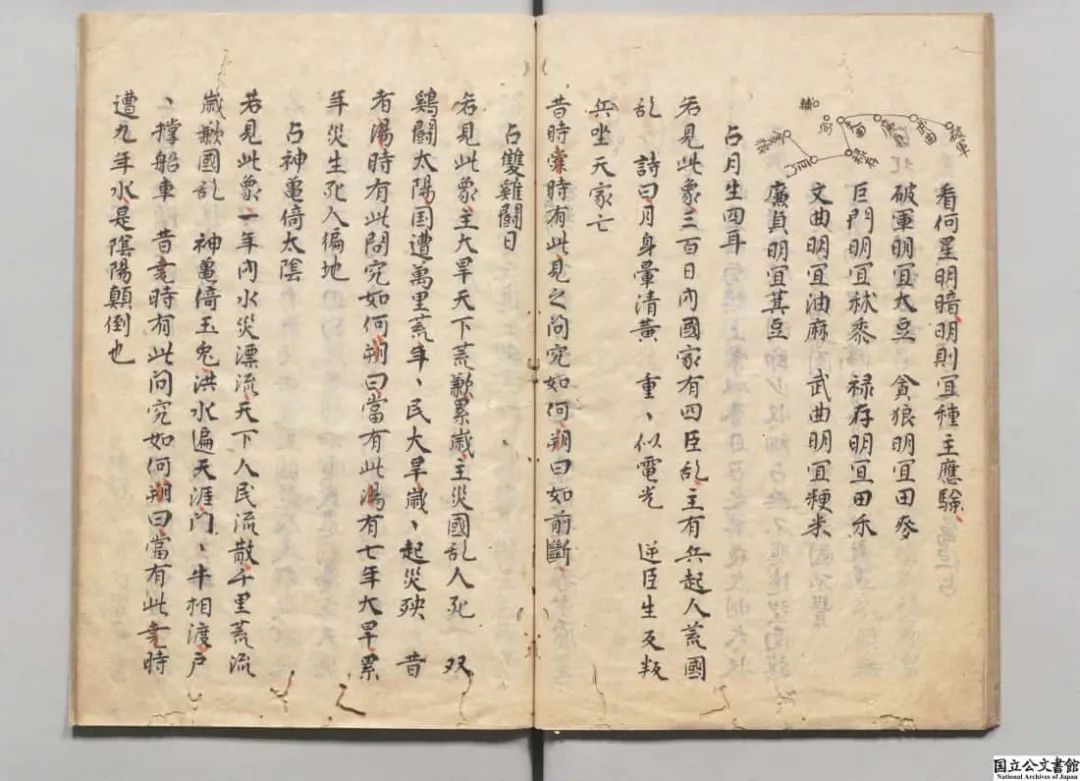 破軍
武曲
廉貞
文
禄存
巨門
貪狼
輔
看何星明暗明則宜種主應験
破軍明宜大豆 貪狼明宜田麦
巨門明宜秫黍 禄存明宜田禾
文曲明宜油麻 武曲明宜粳米
廉貞明宜萁豆
占月生四耳
若見此象三百日內國家有四臣乱主有兵起人荒國
乱 詩曰月身暈清黃 重〻似電光 逆臣生反叛
兵坐天家亡
昔時棠時有此見之问究如何朔曰如前斷
占雙雞闘日
若見此象主大旱天下荒歉累歳主災國乱人死 双
鷄闘太陽国遭萬里荒年〻民大旱歳〻起災殃 昔
者湯時有此闘究如何朔曰當有此湯有七年大旱累
年災生死人徧地
占神亀倚太陰
若見此象一年內水災漂流天下人民流散千里荒流
歳歉國乱 神亀倚玉鬼洪水遍天涯门〻牛相渡戸
〻撑船車 昔尭時有此问究如何朔曰當有此尭時
遭九年水是陰陽顛倒也
国立公文書館
National Archives of Japan